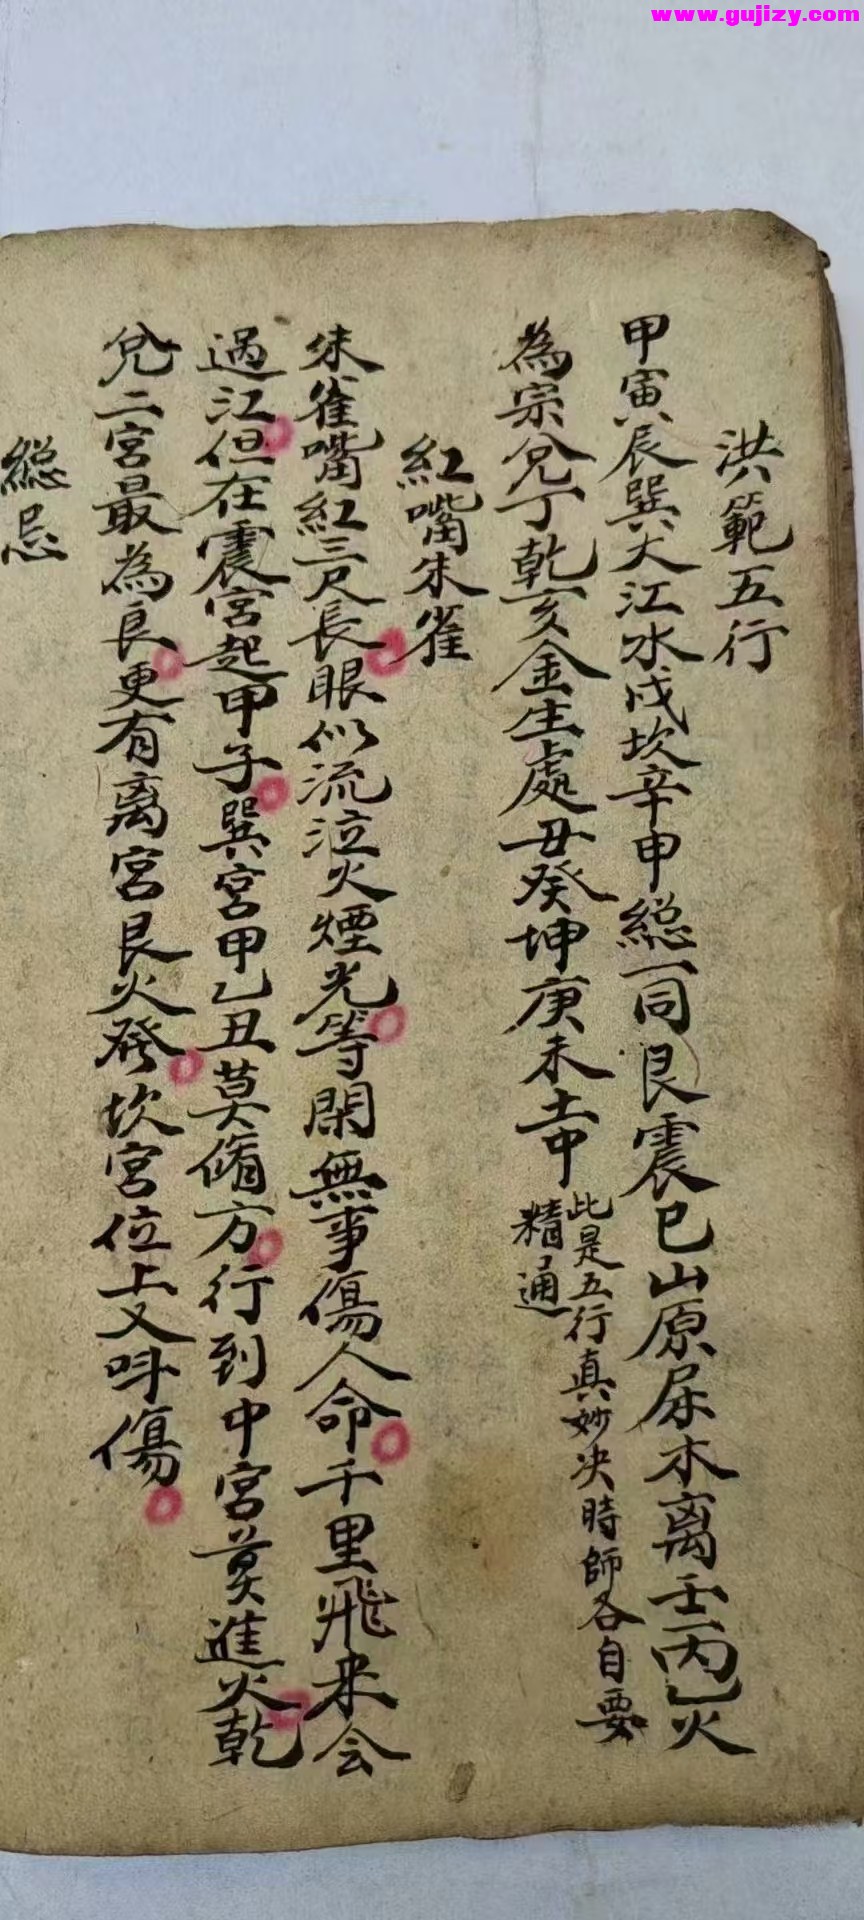 www.gujizy.com
洪範五行
甲寅辰巽大江水戌坎辛申総一同艮震巳山原屬木離壬丙乙火
為宗兌丁乾亥金生處丑癸坤庚未土中
此是五行真妙决時師各自要
精通
紅嘴朱雀
朱雀嘴紅三尺長眼似流泣火煙光等閑無事傷人命千里飛来会
過江但在震宮起甲子巽宮甲乙丑莫脩方行到中宮莫進火乾
兌二宮最為良更有离宮艮火發坎宮位上又呌傷
総忌